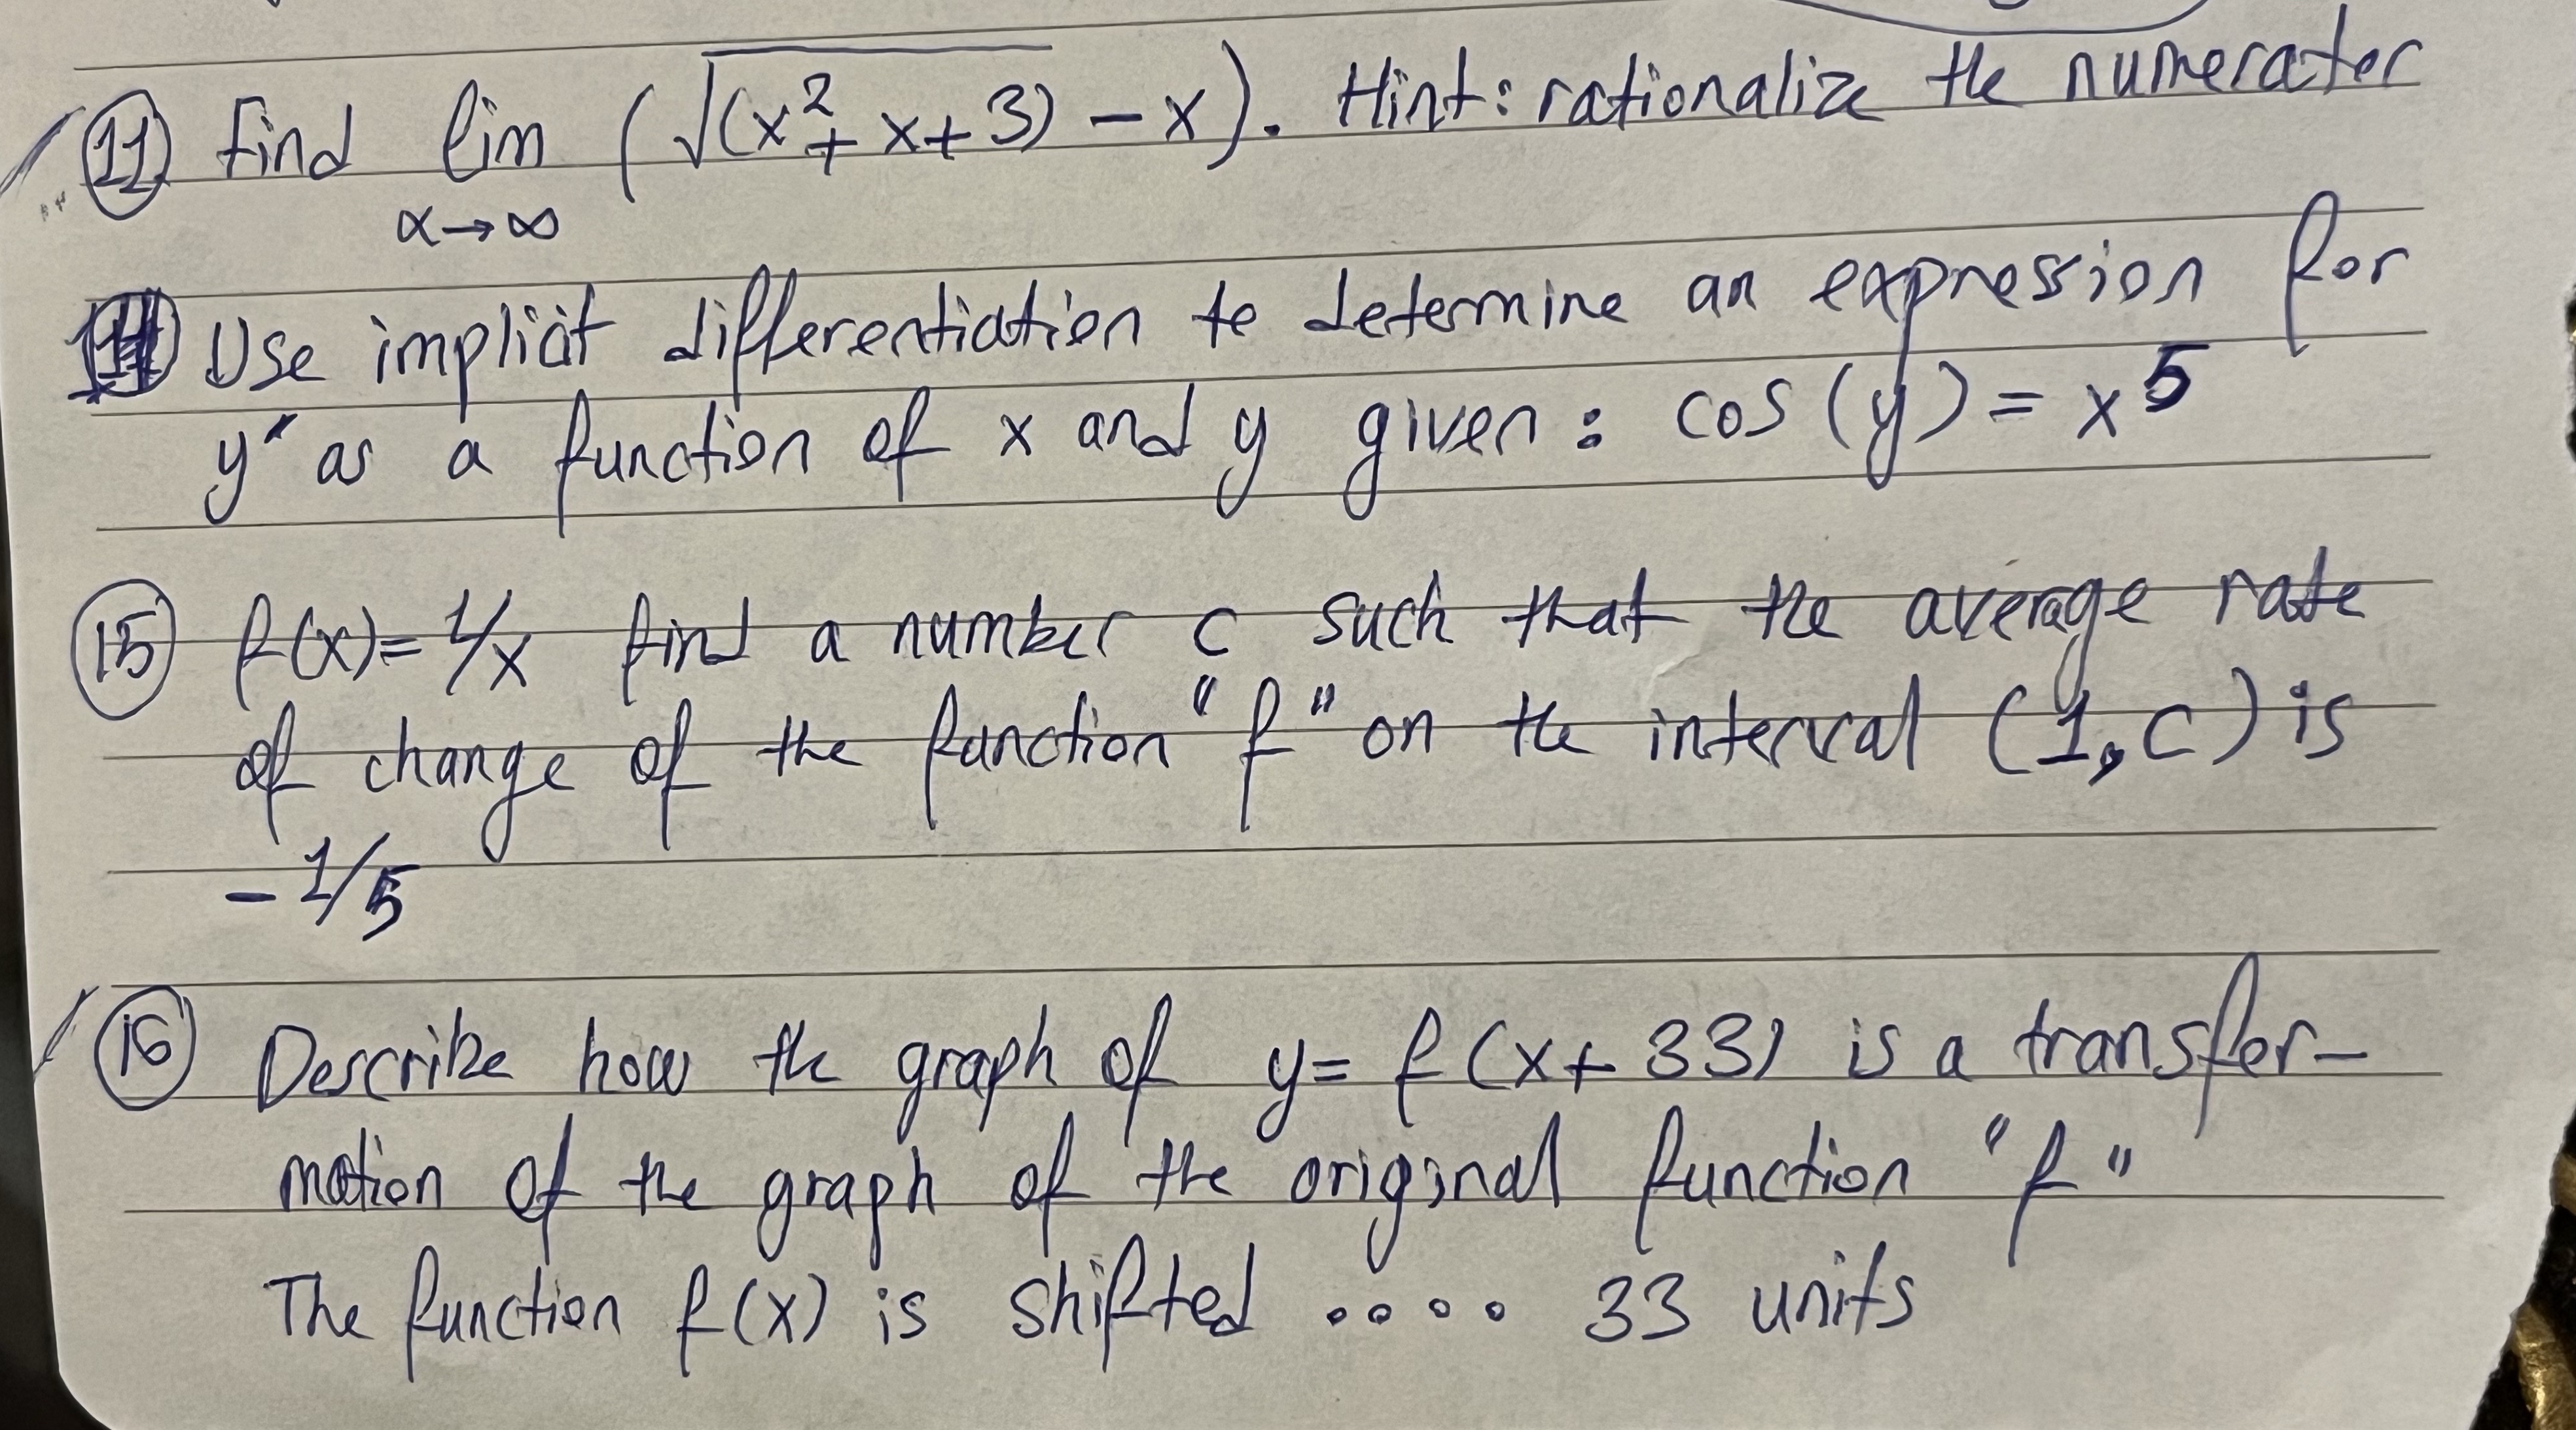 (11) find lim (√(x²+x+3) - x). Hint: rationalize the numerator
x→∞
Use implicit differentiation to determine an expression for
y' as a function of x and y given: cos(y) = x⁵
(15) f(x)= 1/x find a number c such that the average rate
of change of the function "f" on the interval (1,c) is
- 1/5
(16) Describe how the graph of y= f(x+33) is a transfor-
mation of the graph of the original function "f"
The function f(x) is shifted .... 33 units